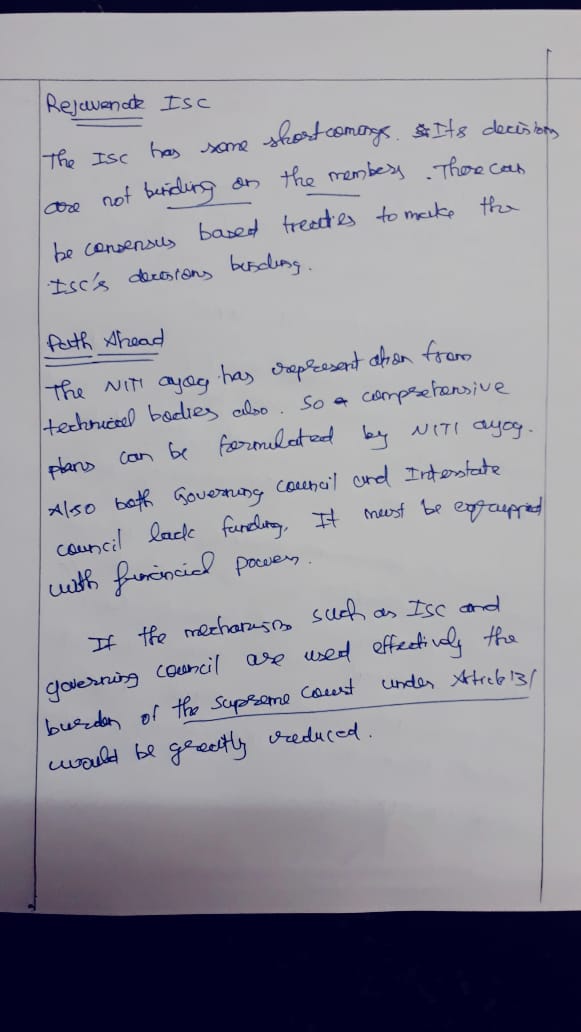 Rejuvenate ISC
The ISC has some shortcomings. Its decisions
are not binding on the members. There can
be consensus based treaties to make the
ISC's decisions binding.
Path Ahead
The NITI ayog has representation from
technical bodies also. So a comprehensive
plans can be formulated by NITI ayog.
Also both Governing council and Interstate
council lack funding. It must be equipped
with financial powers.
If the mechanisms such as ISC and
governing council are used effectively the
burden of the supreme court under Article 131
would be greatly reduced.